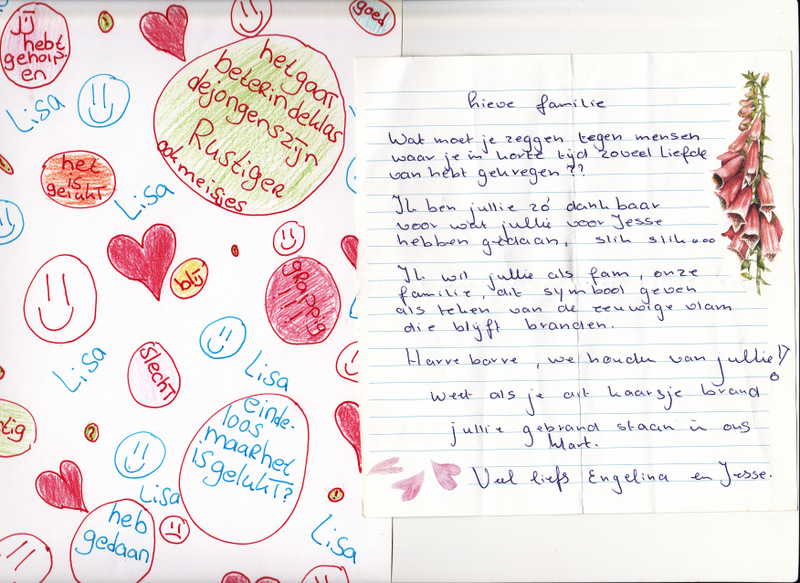 hebt
geholp.
en
goed
Lisa
het gaat
beter in de klas
de jongens zijn
Rustiger
ook meisjes
het
is
gelukt
Lisa
blij
grappig
!!!
slecht
Lisa
Lisa
tig
?
einde-
loos
maar het
is gelukt?
Lisa
heb
gedaan
!
Lisa
Lieve familie
Wat moet je zeggen tegen mensen
waar je in korte tijd zoveel liefde
van hebt gekregen??
Ik ben jullie zó dankbaar
voor wat jullie voor Jesse
hebben gedaan, slik slik...
Ik wil jullie als fam, onze
familie, dit symbool geven
als teken van de eeuwige vlam
die blijft branden.
Harre barre, we houden van jullie!!
Weet als je dit kaarsje brand
jullie gebrand staan in ons
hart.
Veel liefs Engelina en Jesse.